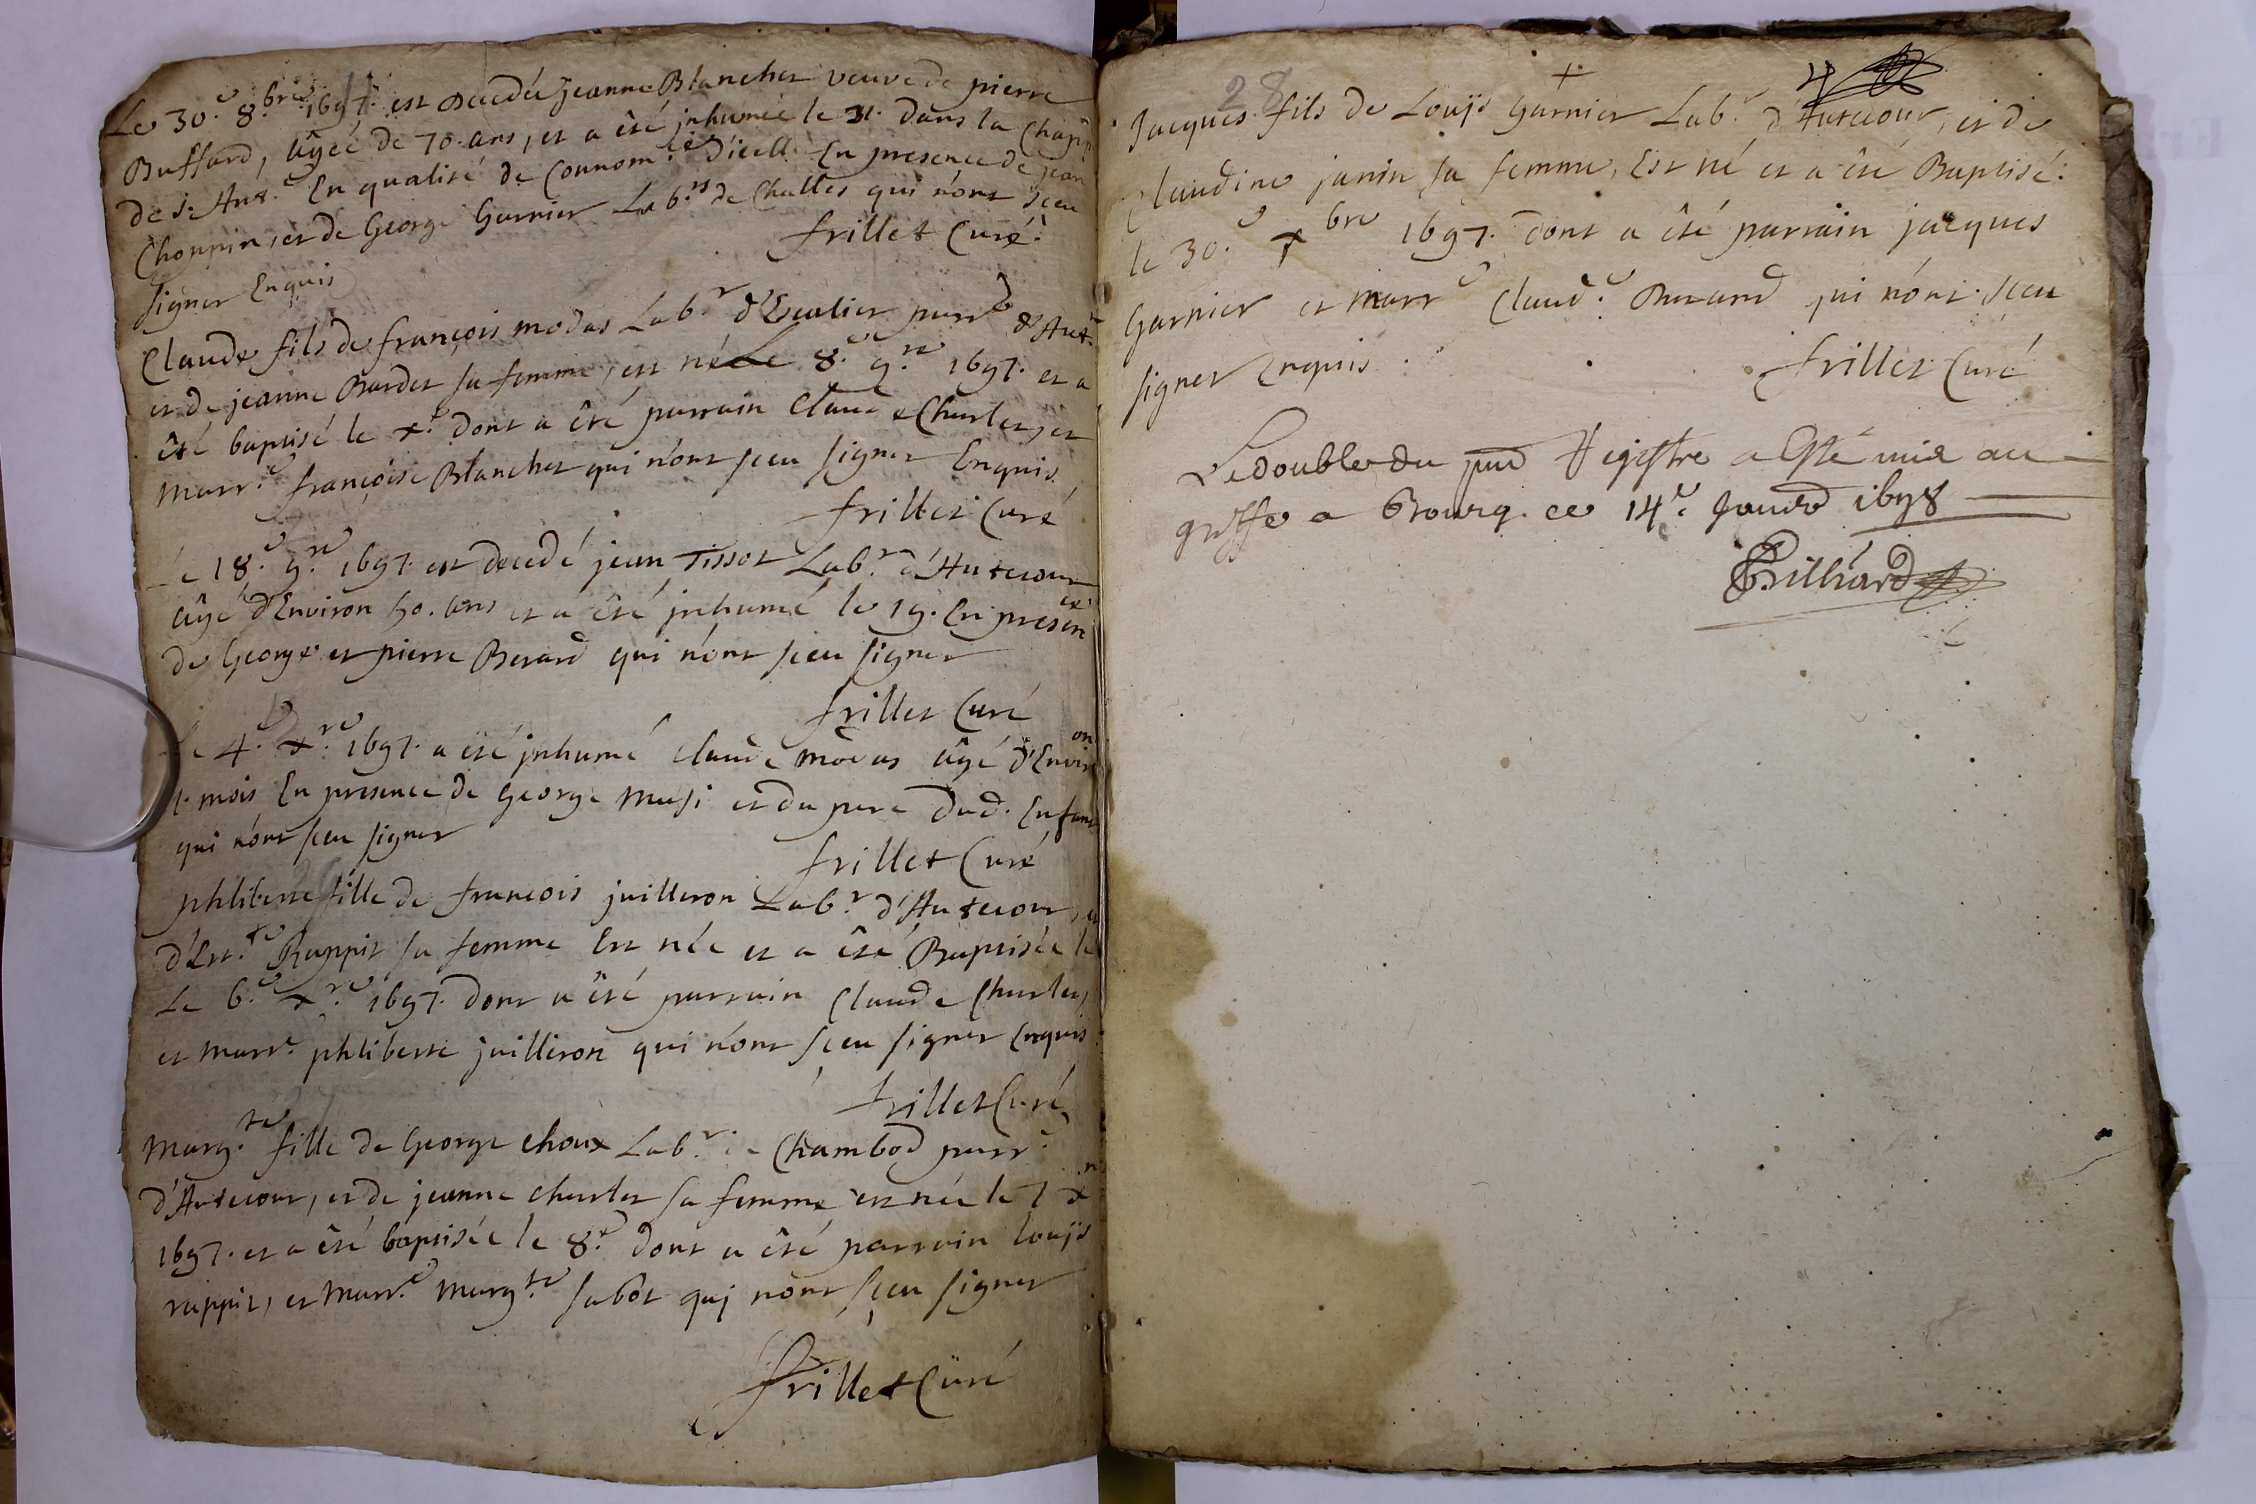 Le 30.e 8.bre 1697. est decedée jeanne Blanchet veuve de pierre
Buffard, âgée de 70. ans, et a êté jnhumée le 31. dans la Chapp
de s.t Ant.e En qualité de Connom.ée d'icell. En presence de jean
Choupin, et de George Garnier Lab.rs de Challes qui n'ont sceu
signer Enquis frillet Curé.
Claude fils de françois modas Lab.r d'Ecalier parr.e d'Aut.
et de jeanne Bardet sa femme, est né Le 8.e 9.re 1697. et a
êté baptisé le x.e dont a êté parrain Claude Charlet, et
Marr.e françoise Blanchet qui n'ont sceu signer Enquis.
frillet Curé
Le 18.e 9.re 1697. est decedé jean Tissot Lab.r d'Autecour
âgé d'Environ 50. ans et a êté jnhumé le 19. En presence
de George et pierre Berard qui n'ont sceu signer
frillet Curé
Le 4.e x.re 1697. a eté jnhumé Claude modas âgé d'Environ
1. mois En presence de George Musi et du pere dud. Enfant
qui n'ont sceu signer
frillet Curé
philiberte fille de francois juilleron Lab.r d'Autecour, et
d'Est.te Rappit sa femme Est née et a êté Baptisée le
Le 6.e x.re 1697. dont a êté parrain Claude Charlet,
et Marr.e phliberte juilleron qui n'ont sceu signer Enquis
frillet Curé
Marg.te fille de George Choux Lab.r de Chambod parr.e
d'Autecour, et de jeanne charlet sa femme est née le 7 x.re
1697. et a êté baptisée le 8.e dont a êté parrain louÿs
rappit, et Marr.e Marg.te sabot quj n'ont sceu signer
frillet Curé
28 + 4
Jacques fils de Louÿs Garnier Lab.r d'Autecour, et de
Claudine janin sa femme, Est né et a êté Baptisé
le 30.e xbre 1697. dont a êté parrain jacques
Garnier et marr.e Claud.e Berard qui n'ont sceu
signer Enquis.
frillet Curé
Le double du pnt Registre a Esté mis au
greffe a Bourg ce 14.e Janvr 1698
Brilliard